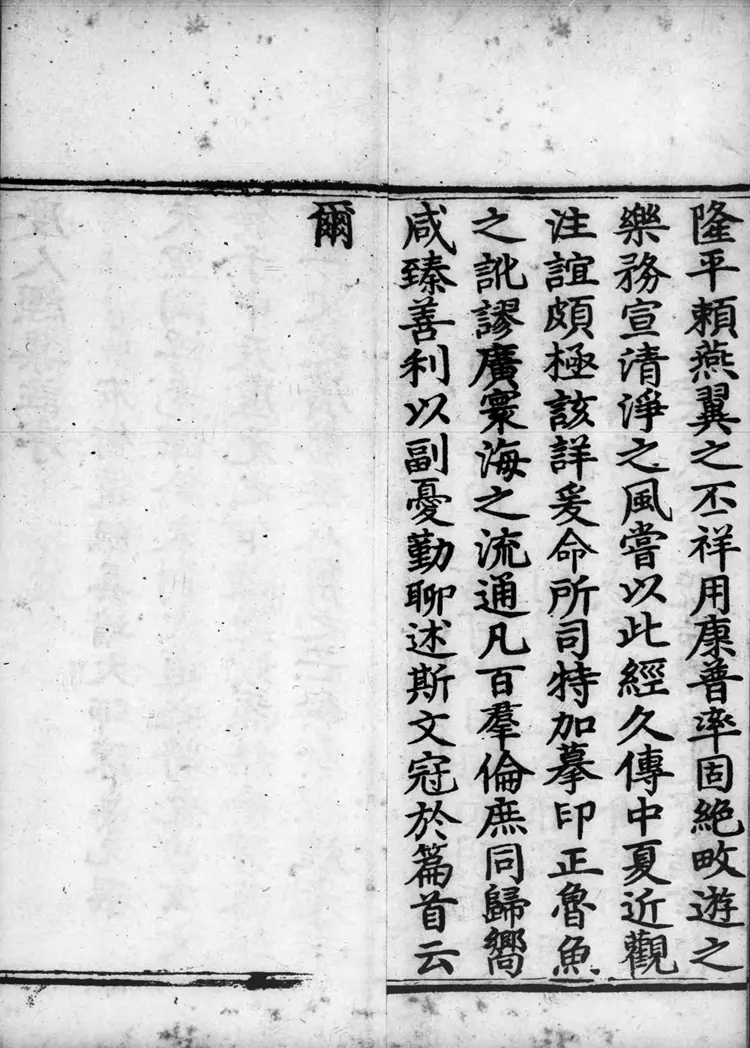 隆平頼燕翼之丕祥用康普率固絶畋遊之
樂務宣清淨之風嘗以此經久傳中夏近觀
注誼頗極該詳爰命所司特加摹印正魯魚
之訛謬廣寰海之流通凡百羣倫庶同歸嚮
咸臻善利以副憂勤聊述斯文冠於篇首云
爾